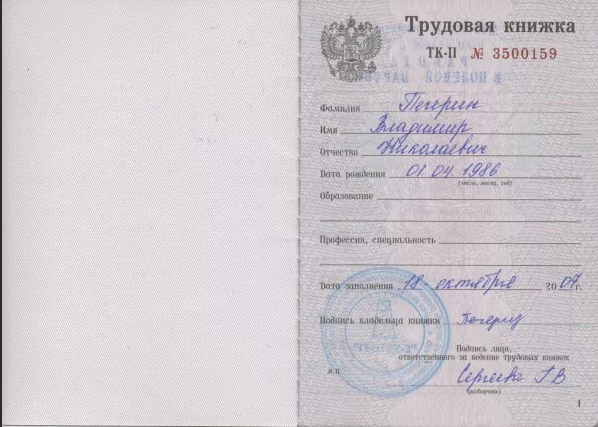 Трудовая книжка
ТК-II № 3500159
Фамилия Пегерин
Имя Владимир
Отчество Николаевич
Дата рождения 01.04.1986
(число, месяц, год)
Образование
Профессия, специальность
Дата заполнения 18 октября 2007г.
Подпись владельца книжки
Подпись лица,
ответственного за ведение трудовых книжек
М.П. Сергеева Г В
(разборчиво)
1